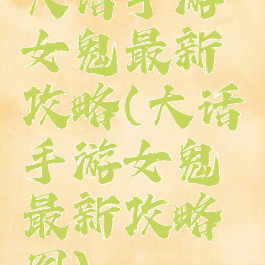 大话手游
女鬼最新
攻略(大话
手游女鬼
最新攻略
图)